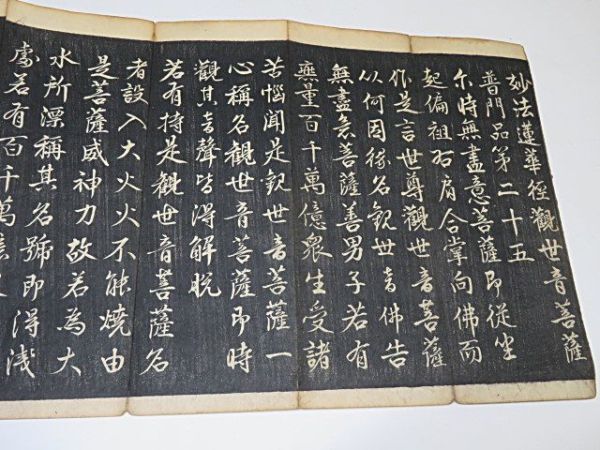 妙法蓮華經觀世音菩薩
普門品第二十五
尒時無盡意菩薩即從坐
起偏袒右肩合掌向佛而
作是言世尊觀世音菩薩
以何因緣名觀世音佛告
無盡意菩薩善男子若有
無量百千萬億眾生受諸
苦惱聞是觀世音菩薩一
心稱名觀世音菩薩即時
觀其音聲皆得解脱
若有持是觀世音菩薩名
者設入大火火不能燒由
是菩薩威神力故若為大
水所漂稱其名號即得浅
處若有百千萬億